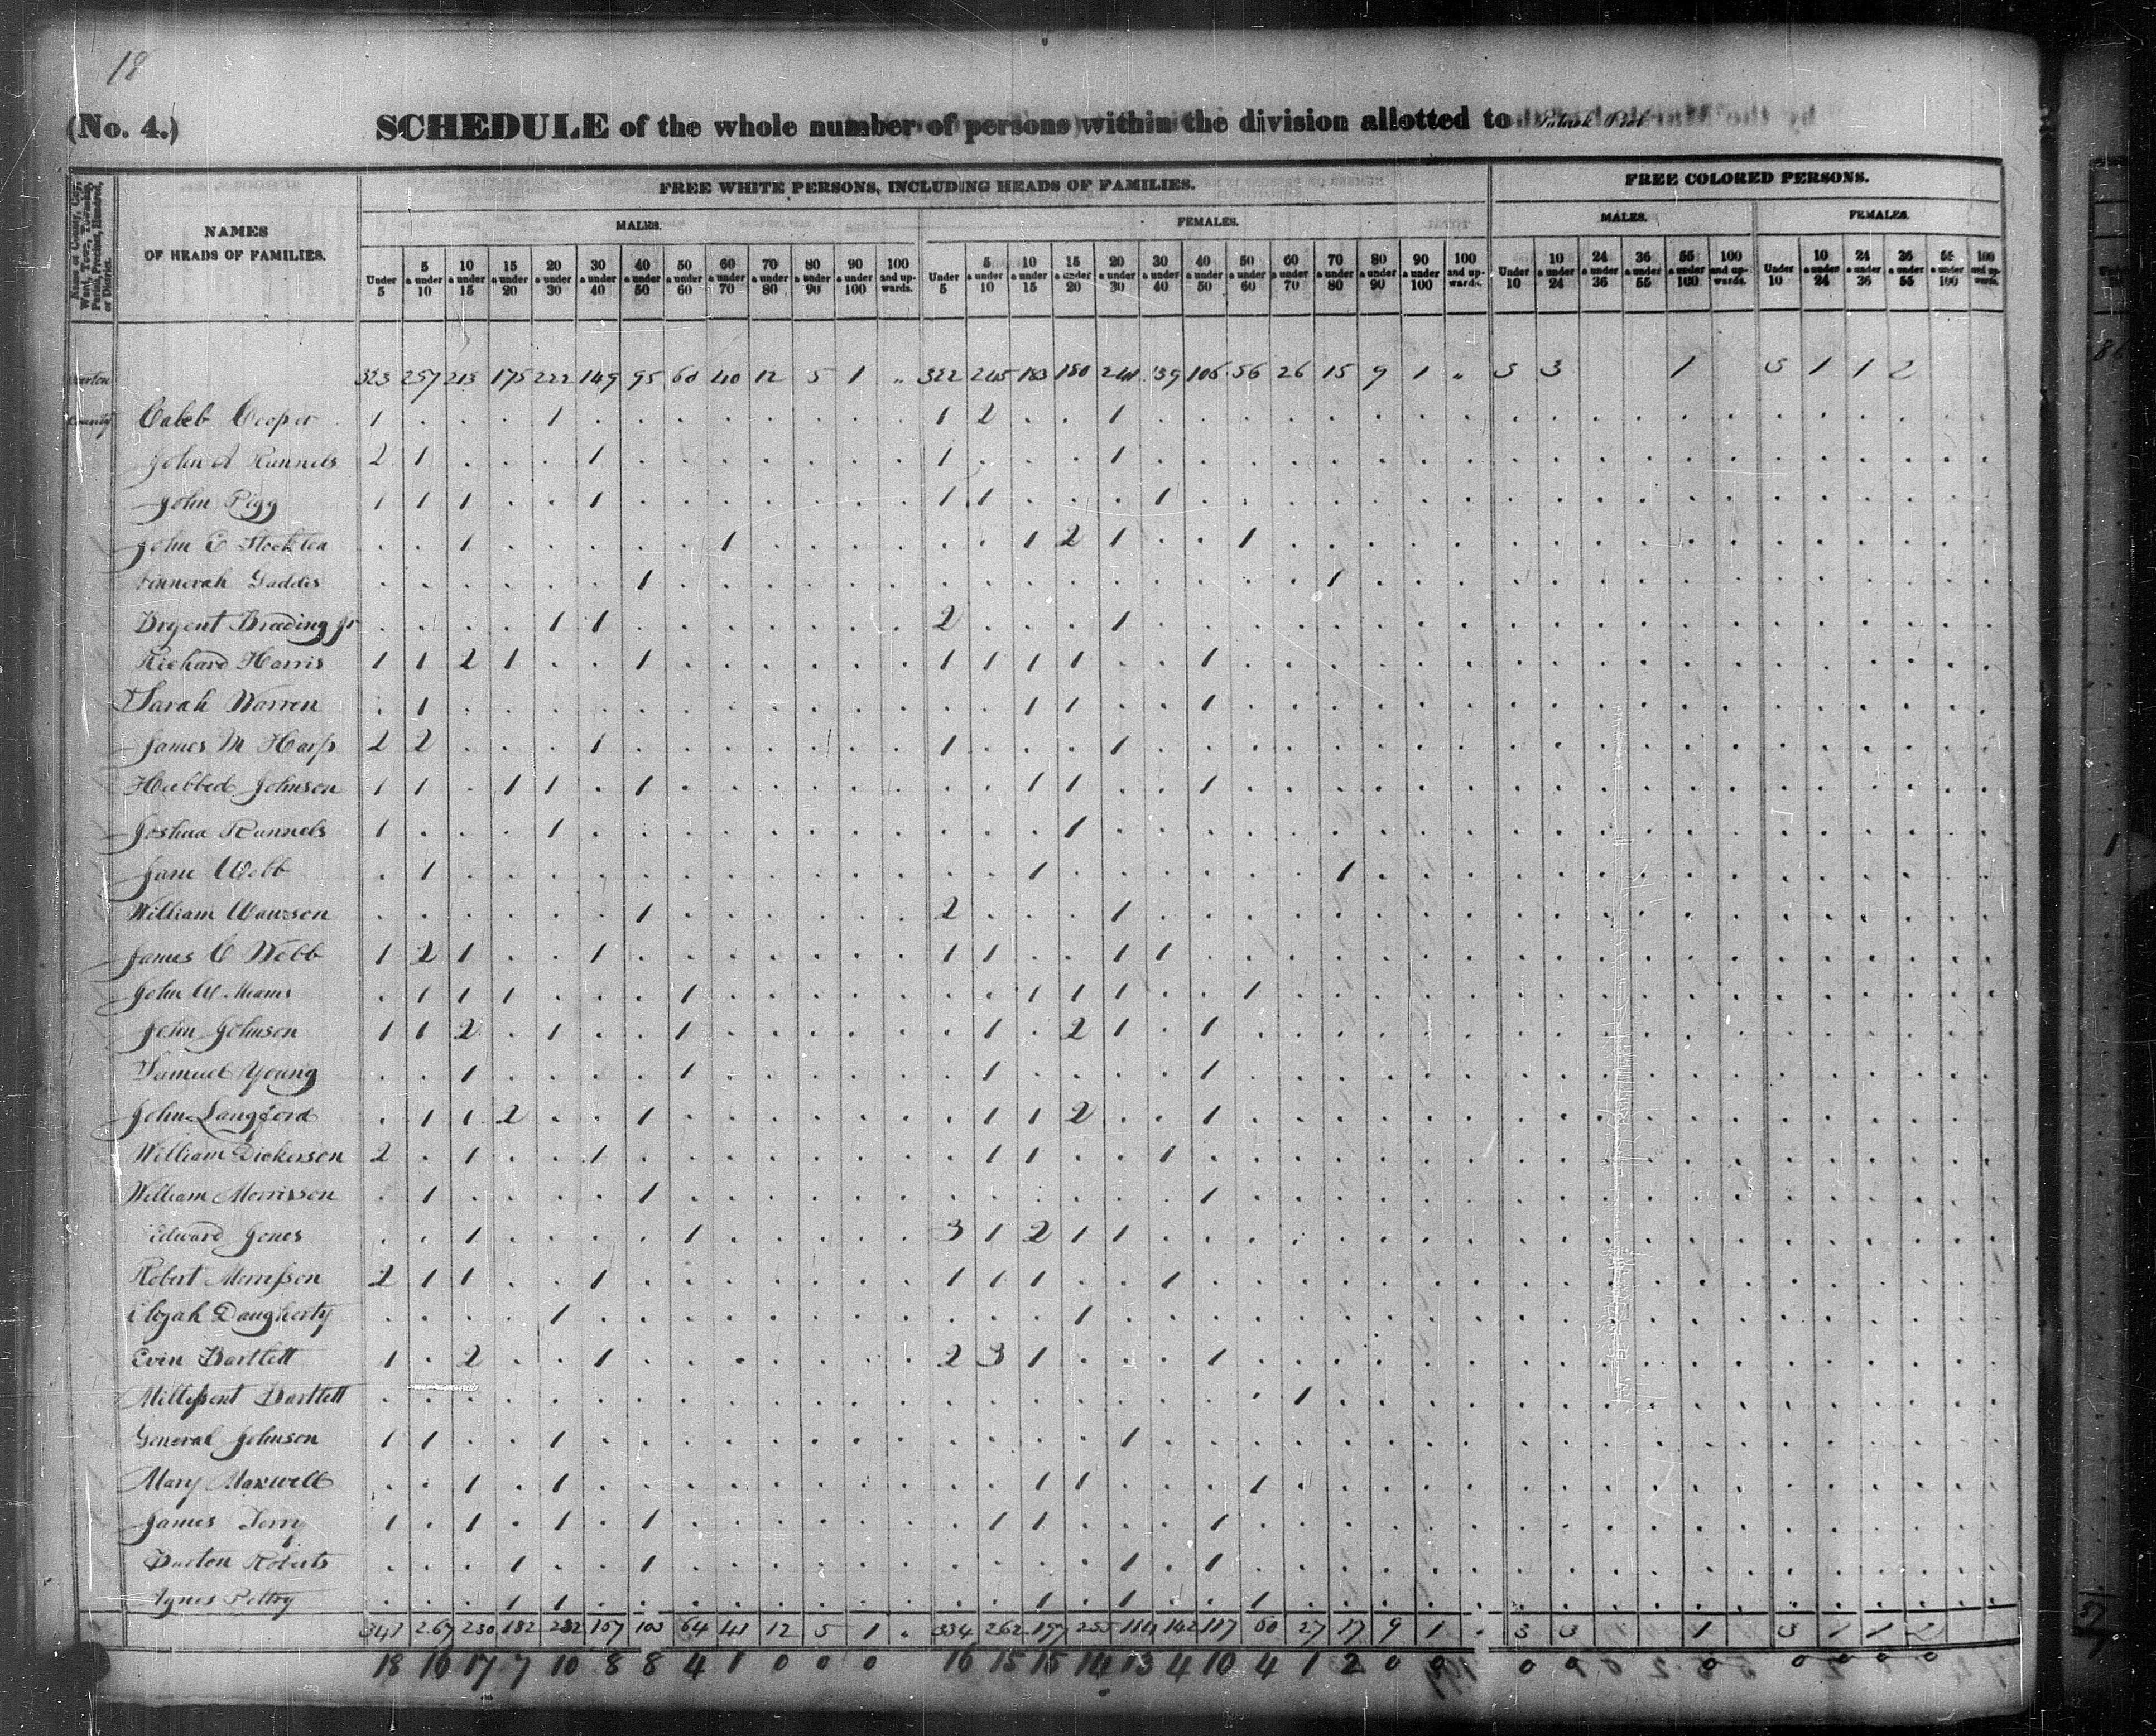 18
(No. 4.) SCHEDULE of the whole number of persons within the division allotted to
FREE WHITE PERSONS, INCLUDING HEADS OF FAMILIES. FREE COLORED PERSONS.
MALES. FEMALES. MALES. FEMALES.
Name of County, City, Ward, Town, Township, Parish, Precinct, Hundred, or District.
NAMES
OF HEADS OF FAMILIES.
Under 5 5 & under 10 10 & under 15 15 & under 20 20 & under 30 30 & under 40 40 & under 50 50 & under 60 60 & under 70 70 & under 80 80 & under 90 90 & under 100 100 and upwards. Under 5 5 & under 10 10 & under 15 15 & under 20 20 & under 30 30 & under 40 40 & under 50 50 & under 60 60 & under 70 70 & under 80 80 & under 90 90 & under 100 100 and upwards. Under 10 10 & under 24 24 & under 36 36 & under 55 55 & under 100 100 and upwards. Under 10 10 & under 24 24 & under 36 36 & under 55 55 & under 100 100 and upwards.
323 257 213 175 222 149 95 60 40 12 5 1 322 245 183 180 241 139 106 56 26 15 9 1 3 3 1 3 1 1 2
County Caleb Cooper 1 1 1 2 1
John A Runnels 2 1 1 1 1
John Pigg 1 1 1 1 1 1 1
John C Stockton 1 1 1 2 1 1
Gaddis 1 1
Bryent Breeding Jr 1 1 2 1
Richard Harris 1 1 2 1 1 1 1 1 1 1
Sarah Warren 1 1 1 1
James M Harp 2 2 1 1 1
Hubbed Johnson 1 1 1 1 1 1 1 1
Joshua Runnels 1 1 1
Jane Webb 1 1 1
William 1 2 1
James C Webb 1 2 1 1 1 1 1 1
John W 1 1 1 1 1 1 1 1
John Johnson 1 1 2 1 1 1 2 1 1
Samuel Young 1 1 1 1
John Langford 1 1 2 1 1 1 2 1
William Dickerson 2 1 1 1 1 1
William Morrisson 1 1 1
Edward Jones 1 1 3 1 2 1 1
Robert Morrisson 2 1 1 1 1 1 1 1
Elijah Daugherty 1 1
Evin Bartlett 1 2 1 2 3 1 1
Millissent Bartlett 1
General Johnson 1 1 1 1
Mary Maxwell 1 1 1 1 1
James Terry 1 1 1 1 1 1 1
Burton Roberts 1 1 1 1
Agnes Pettry 1 1 1 1 1
341 267 230 182 232 157 103 64 41 12 5 1 334 262 197 255 114 142 117 60 27 17 9 1 3 3 1 3 1 1 2
18 16 17 7 10 8 8 4 1 0 0 0 16 15 15 14 13 4 10 4 1 2 0 0 0 0 0 0 0 0 0